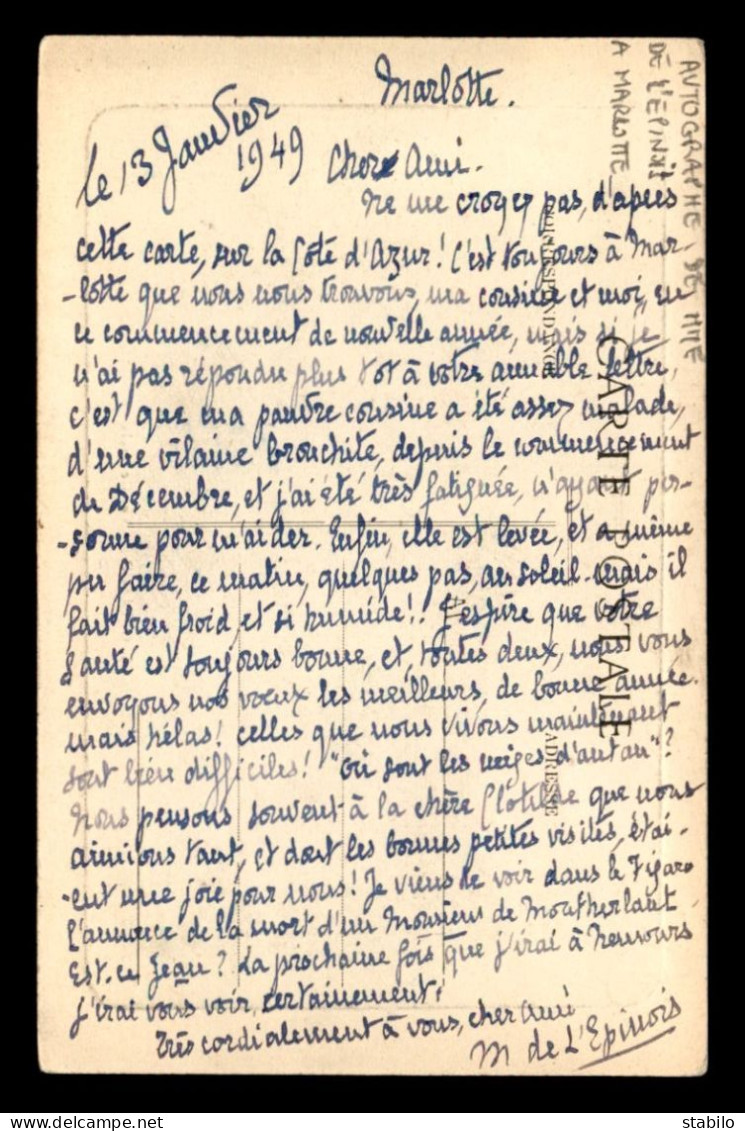 Marlotte.
le 13 Janvier
1949
Cher Ami.
Ne me croyez pas, d'après
cette carte, sur la Côte d'Azur! C'est toujours à Mar-
-lotte que nous nous trouvons, ma cousine et moi, en
ce commencement de nouvelle année, mais si je
n'ai pas répondu plus tot à votre aimable lettre,
c'est que ma pauvre cousine a été assez malade,
d'une vilaine bronchite, depuis le commencement
de Décembre, et j'ai été très fatiguée, n'ayant per-
-sonne pour m'aider. Enfin, elle est levée, et a même
pu faire, ce matin, quelques pas, au soleil - mais il
fait bien froid, et si humide!! J'espère que votre
santé est toujours bonne, et, toutes deux, nous vous
envoyons nos voeux les meilleurs, de bonne année.
mais hélas! celles que nous vivons maintenant
sont bien difficiles! "Où sont les neiges d'antan"?
Nous pensons souvent à la chère Clotilde que nous
aimions tant, et dont les bonnes petites visites, étai-
-ent une joie pour nous! Je viens de voir dans le Figaro
l'annonce de la mort d'un Monsieur de Montherlant
Est-ce Jean? La prochaine fois que j'irai à Nemours
j'irai vous voir, certainement.
Très cordialement à vous, cher Ami
M de L'Epinois
AUTOGRAPHE DE MLLE
DE L'EPINOIS
A MARLOTTE
CARTE POSTALE
CORRESPONDANCE
ADRESSE